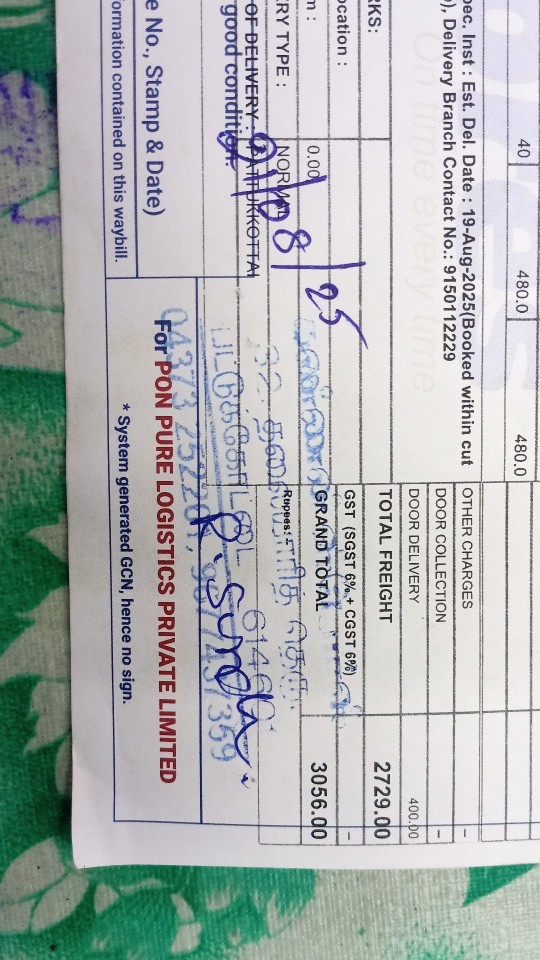 40 480.0 480.0
pec. Inst : Est. Del. Date : 19-Aug-2025(Booked within cut
), Delivery Branch Contact No.: 9150112229
On time every time
OTHER CHARGES -
DOOR COLLECTION -
DOOR DELIVERY 400.00
TOTAL FREIGHT 2729.00
GST (SGST 6% + CGST 6%) -
GRAND TOTAL 3056.00
Rupees:
RKS:
ocation :
m : 0.00
RY TYPE : NORMAL
OF DELIVERY :
good condition.
/08/25
e No., Stamp & Date)
formation contained on this waybill.
For PON PURE LOGISTICS PRIVATE LIMITED
* System generated GCN, hence no sign.